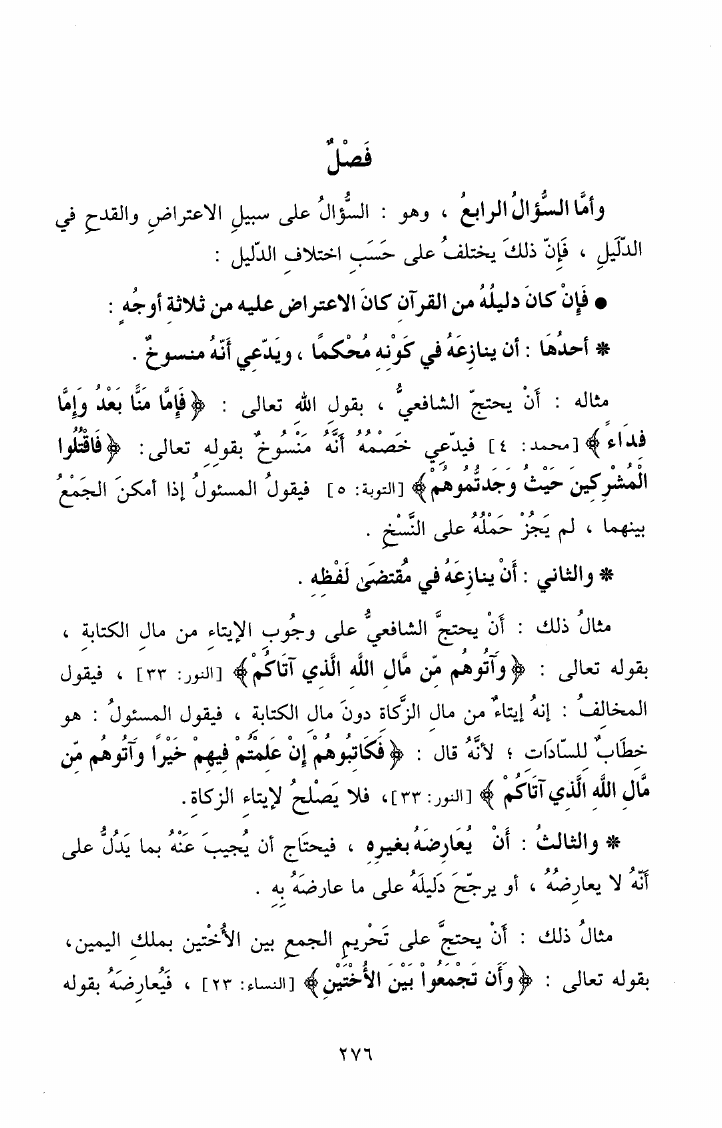 فَصْلٌ
وأمَّا السؤالُ الرابعُ ، وهو : السؤالُ على سبيلِ الاعتراضِ والقدحِ في
الدّليلِ ، فَإِنّ ذلكَ يختلفُ على حَسَبِ اختلافِ الدّليل :
● فَإِنْ كانَ دليلُهُ من القرآن كانَ الاعتراض عليه من ثلاثةِ أوجُهٍ :
* أحدُهَا : أن ينازِعَهُ في كَوْنِهِ مُحْكمًا ، ويَدّعي أنّهُ منسوخٌ .
مثاله : أَنْ يحتجّ الشافعيُّ ، بقولِ اللهِ تعالى : ﴿ فَإِمَّا مَنًّا بَعْدُ وَإِمَّا
فِدَاءً ﴾ [محمد: ٤] فيدّعِي خَصْمُهُ أنَّهُ مَنْسُوخٌ بقولِهِ تعالى: ﴿ فَاقْتُلُوا
الْمُشْرِكِينَ حَيْثُ وَجَدتُّمُوهُمْ ﴾ [التوبة: ٥] فيقولُ المسئولُ إذا أمكنَ الجَمْعُ
بينهما ، لم يَجُزْ حَمْلُهُ على النَّسْخِ .
* والثاني : أَنْ ينازِعَهُ في مُقتضَى لَفْظِهِ .
مثالُ ذلك : أَنْ يحتجَّ الشافعيُّ على وجُوبِ الإيتاءِ من مالِ الكتابةِ ،
بقوله تعالى : ﴿ وَآتُوهُم مِّن مَّالِ اللَّهِ الَّذِي آتَاكُمْ ﴾ [النور: ٣٣] ، فيقول
المخالفُ : إنهُ إيتاءٌ من مال الزَّكاةِ دونَ مالِ الكتابةِ ، فيقول المسئولُ : هو
خطابٌ للسّادَاتِ ؛ لأنَّهُ قال : ﴿ فَكَاتِبُوهُمْ إِنْ عَلِمْتُمْ فِيهِمْ خَيْرًا وَآتُوهُم مِّن
مَّالِ اللَّهِ الَّذِي آتَاكُمْ ﴾ [النور: ٣٣]، فلا يَصْلحُ لإيتاءِ الزكاةِ.
* والثالثُ : أَنْ يُعَارِضَهُ بغيرِهِ ، فيحتَاج أن يُجيبَ عَنْهُ بما يَدُلُّ على
أنّهُ لا يعارضُهُ ، أو يرجّحَ دَليلَهُ على ما عارضَهُ بِهِ .
مثالُ ذلك : أَنْ يحتجَّ على تَحْريمِ الجمعِ بين الأُختين بملكِ اليمين،
بقوله تعالى : ﴿ وَأَن تَجْمَعُواْ بَيْنَ الأُخْتَيْنِ ﴾ [النساء: ٢٣] ، فَيُعارِضَهُ بقوله
٢٧٦